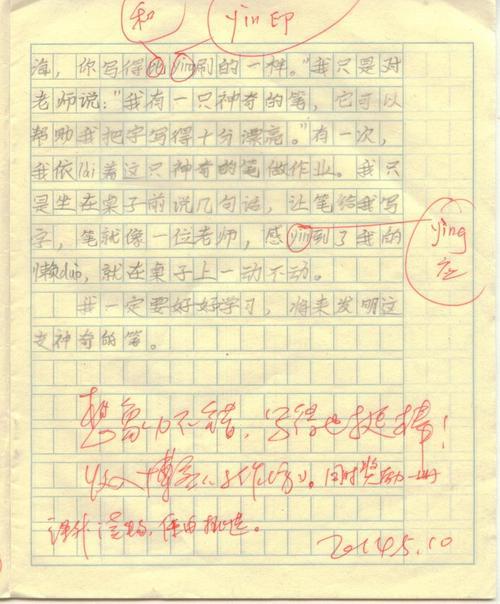 和
yin 印
海，你写得比ying刷的一样。”我只是对
老师说：“我有一只神奇的笔，它可以
帮助我把字写得十分漂亮。”有一次，
我依lài着这只神奇的笔做作业。我只
是坐在桌子前说几句话，让笔给我写
字，笔就像一位老师，感yin到了我的
懒duò，就在桌子上一动不动。
我一定要好好学习，将来发明这
支神奇的笔。
ying
应
想象力不错，写得也挺棒！
收入博客《》。同时奖励一册
课外读物，任由挑选。
2014.5.10